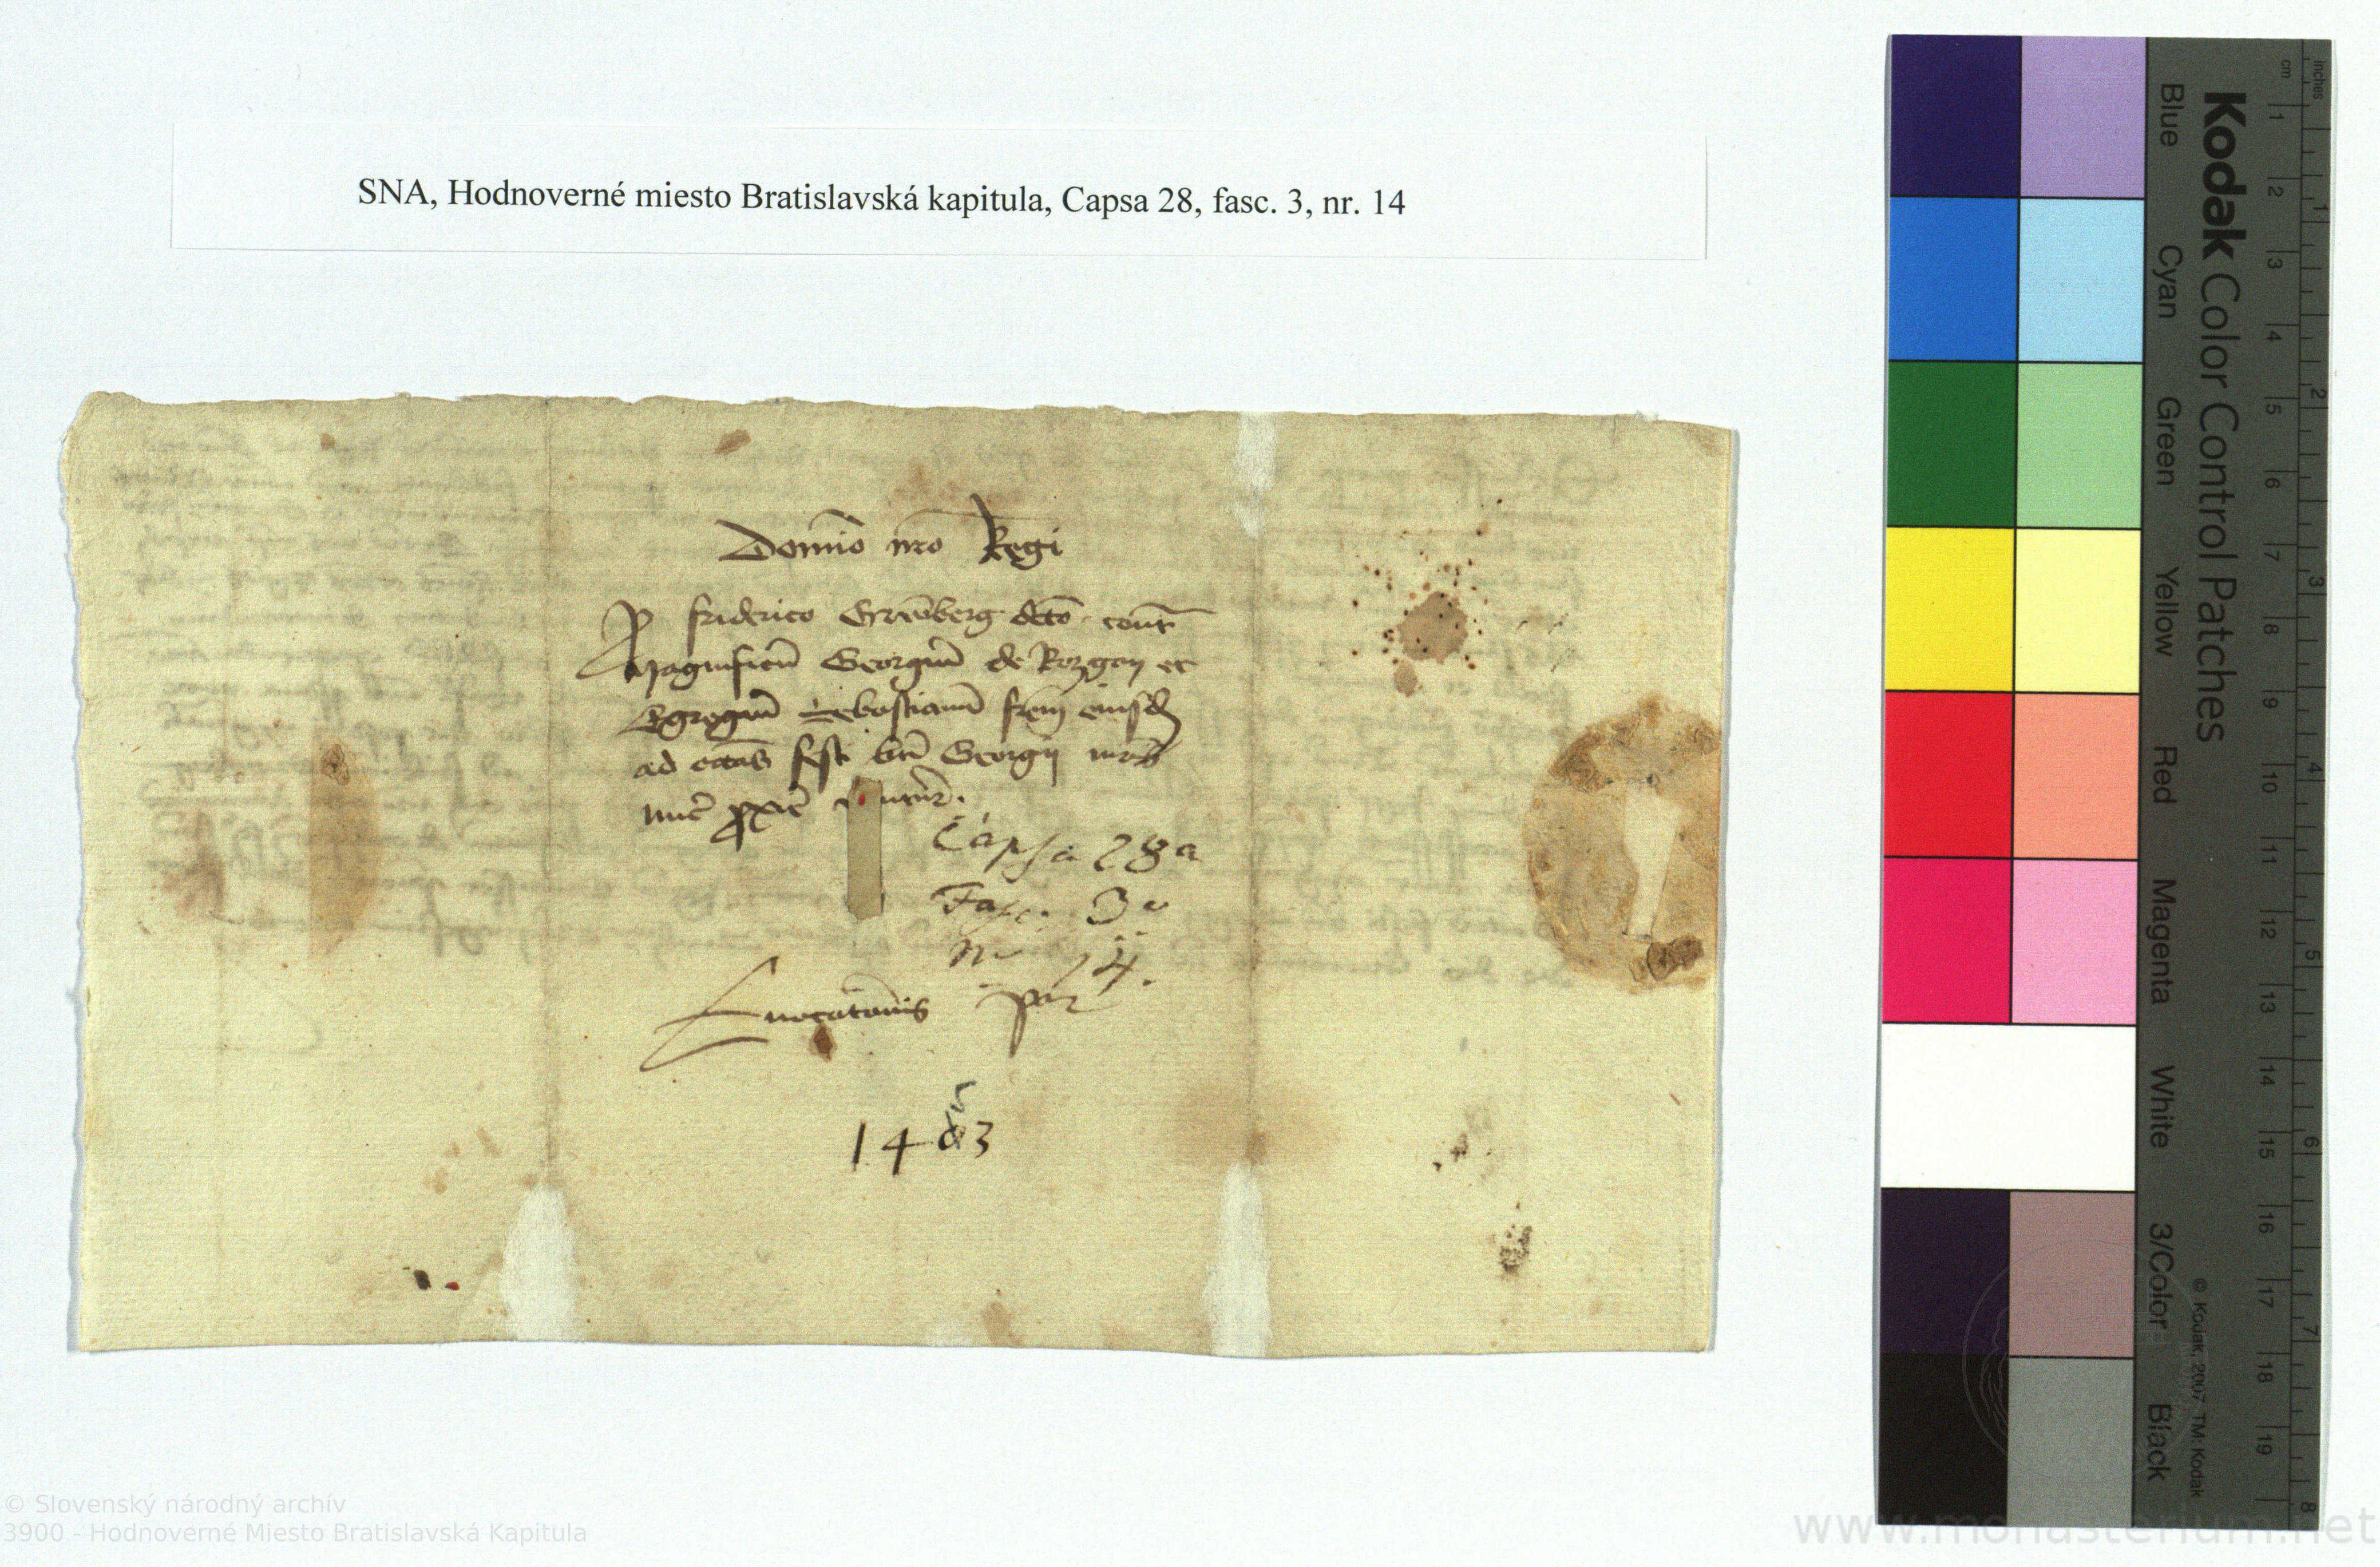 SNA, Hodnoverné miesto Bratislavská kapitula, Capsa 28, fasc. 3, nr. 14
Domino nro Regi
P friderico Grewnberg dcto contr
Magnificum Georgium de Rozgon et
Egregium Sebastianum frem eiusd
ad octavas festi bti Georgii mris
nunc prxime venturas.
Capsa 28a
Fasc. 3o
Nr 14.
Evocatonis par
1483
5
Kodak Color Control Patches
Blue Cyan Green Yellow Red Magenta White 3/Color Black
© Kodak, 2007, TM: Kodak
inches 1 2 3 4 5 6 7 8
cm 1 2 3 4 5 6 7 8 9 10 11 12 13 14 15 16 17 18 19
© Slovenský národný archív
3900 - Hodnoverné Miesto Bratislavská Kapitula
www.monasterium.net